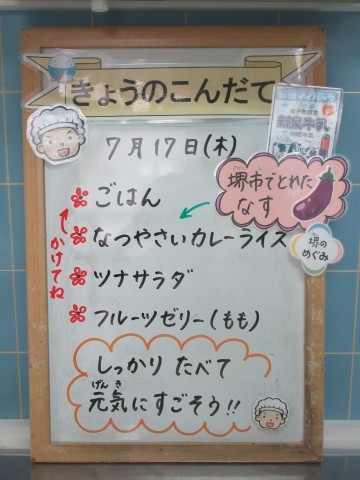 きょうのこんだて
7月17日(木)
堺市でとれた
なす
堺の
めぐみ
ごはん
なつやさいカレーライス
ツナサラダ
フルーツゼリー(もも)
かけてね
しっかり たべて
元気にすごそう!!
げんき